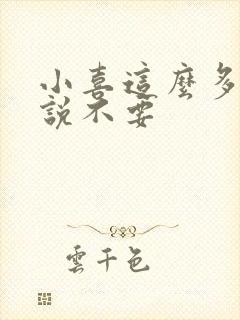 小喜這麼多
說不要
雲千色